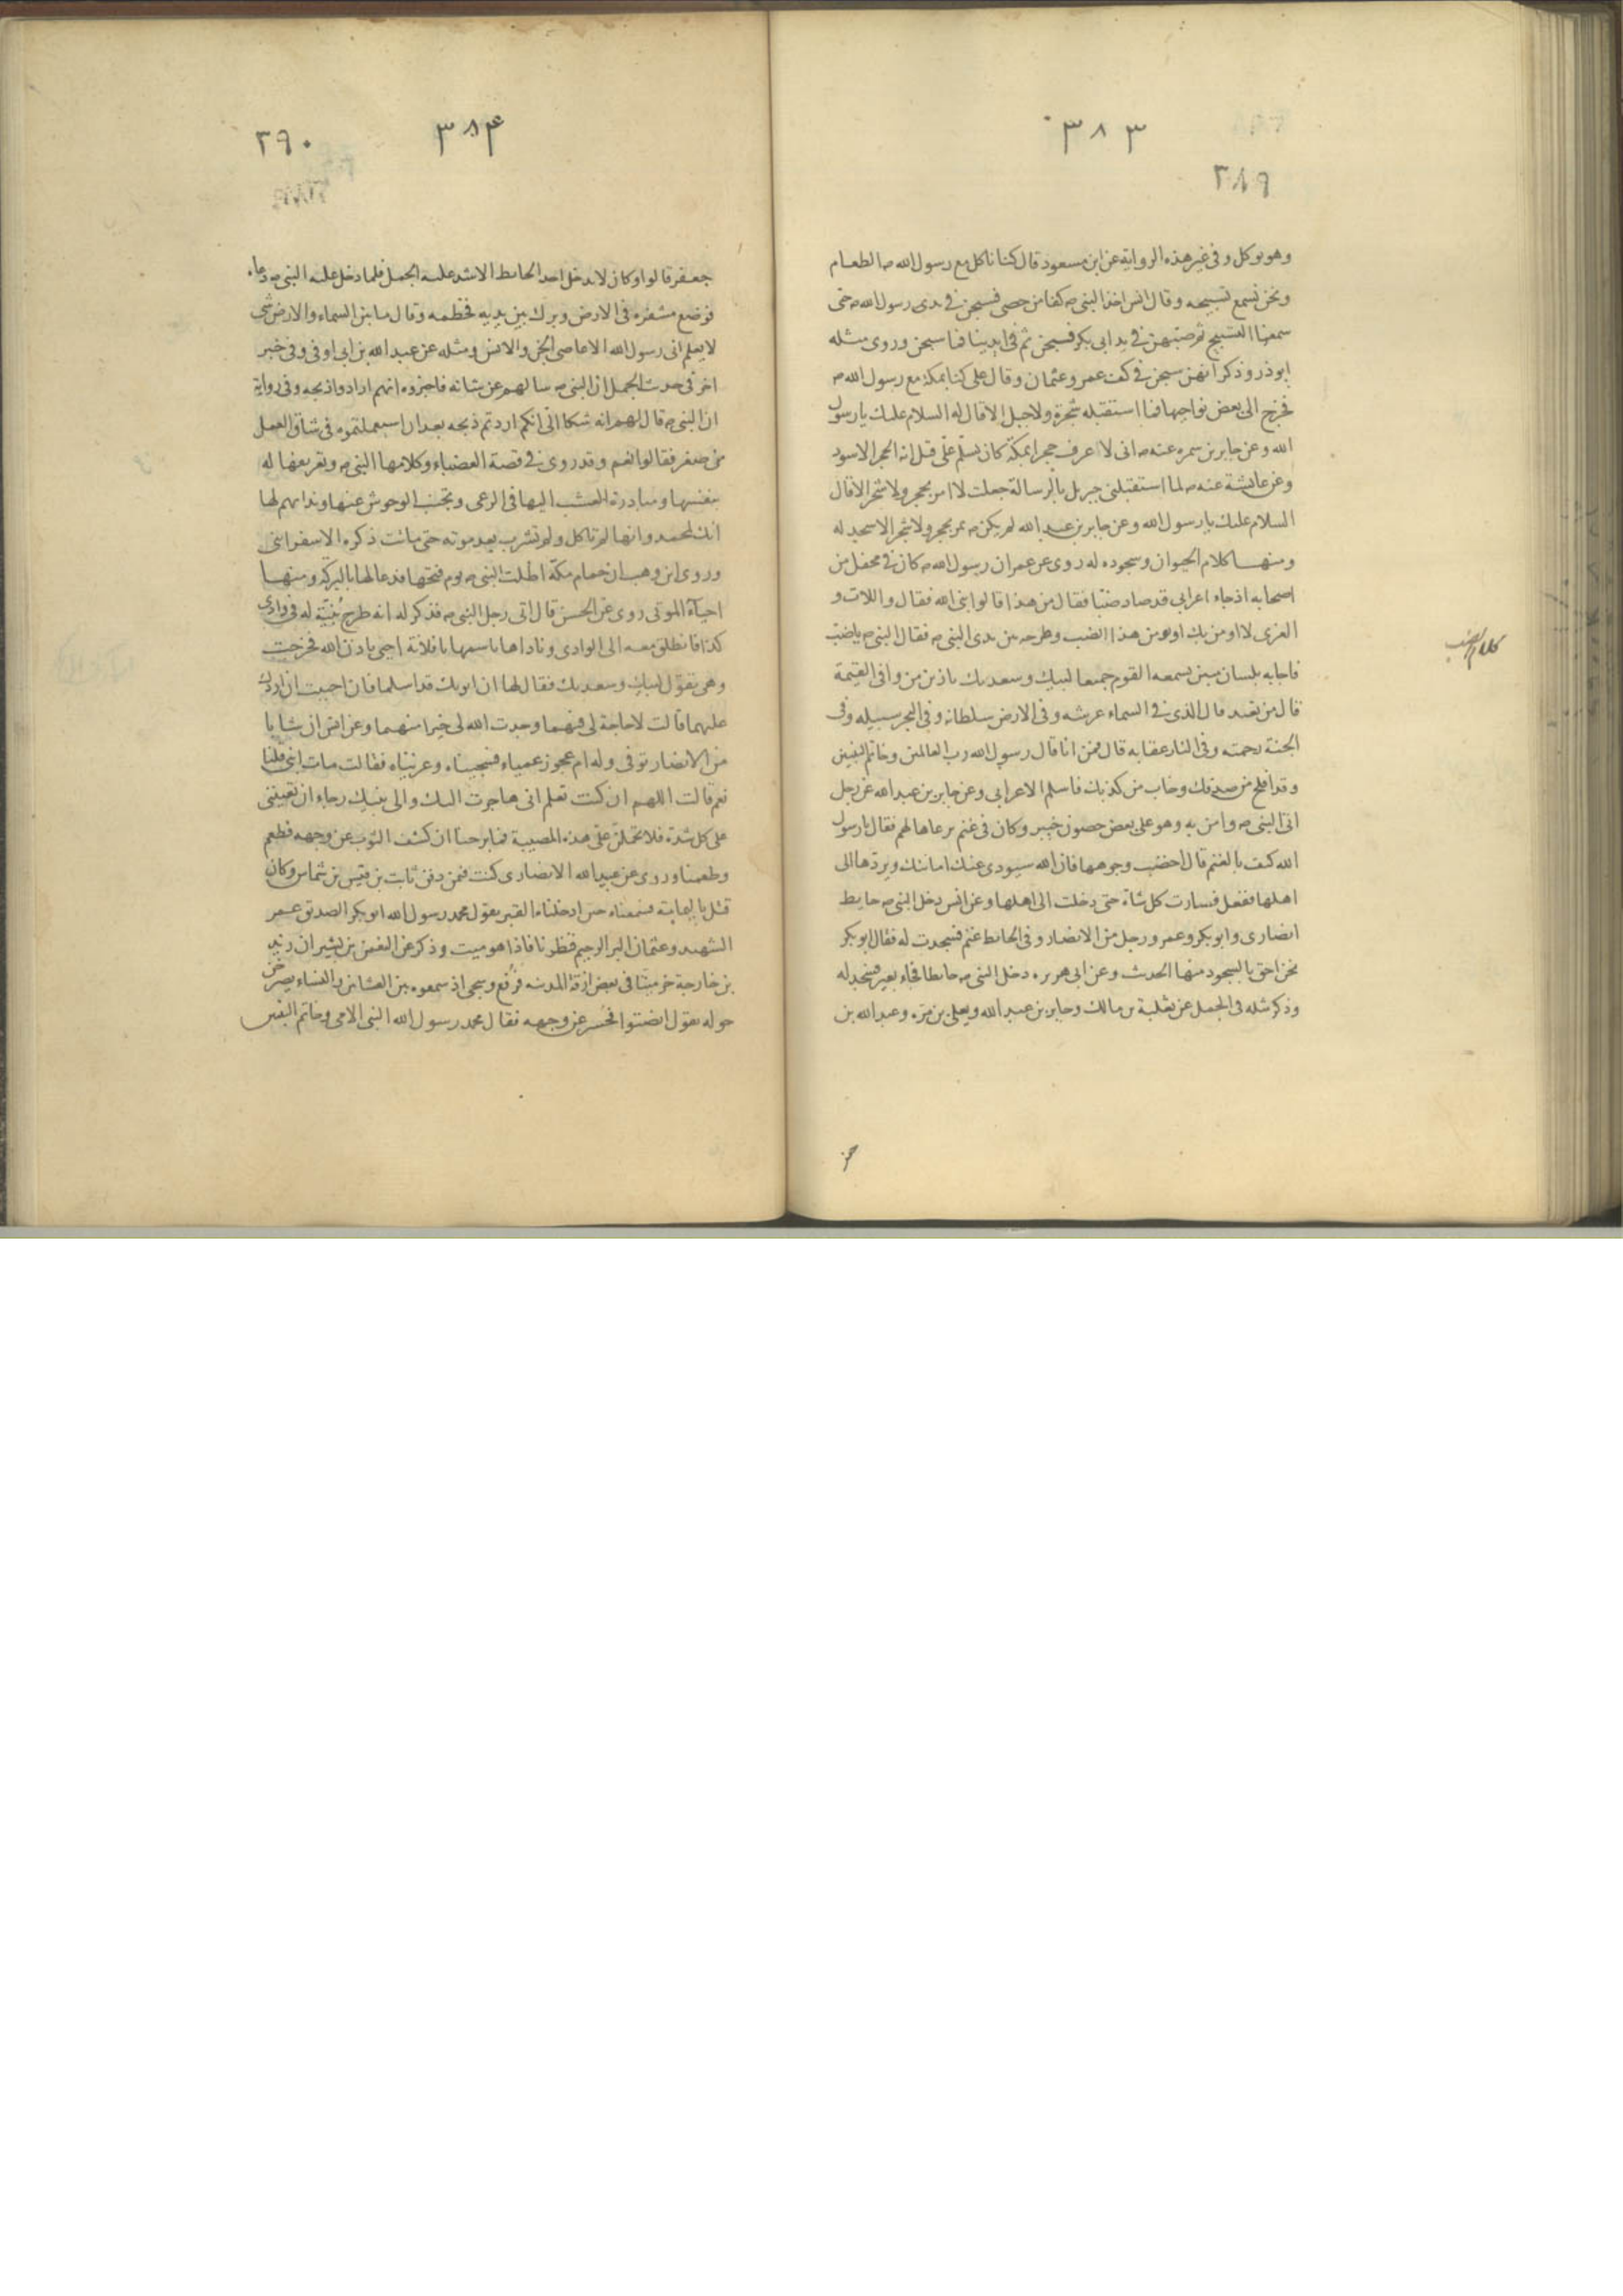 ٣٨٣
٣٨٩
وهو يوكل وفى غير هذه الرواية عن ابن مسعود قال كنا ناكل مع رسول الله ص الطعام
ونحن نسمع تسبيحه وقال انس اخذ النبى ص كفا من حصى فسبحن فى يدى رسول الله ص حتى
سمعنا التسبيح ثم صبهن فى يد ابى بكر فسبحن ثم فى ايدينا فما سبحن وروى مثله
ابو ذر وذكر انهن سبحن فى كف عمر وعثمان وقال على كنا بمكة مع رسول الله ص
فخرج الى بعض نواحيها فما استقبله شجرة ولا جبل الا قال له السلام عليك يا رسول
الله وعن جابر بن سمره عنه ص انى لا اعرف حجرا بمكة كان يسلم على قيل انه الحجر الاسود
وعن عايشة عنه ص لما استقبلنى جبريل بالرسالة جعلت لا امر بحجر ولا شجر الا قال
السلام عليك يا رسول الله وعن جابر بن عبد الله لم يكن ص يمر بحجر ولا شجر الا سجد له
ومنها كلام الحيوان وسجوده له روى عن عمر ان رسول الله ص كان فى محفل من
اصحابه اذ جاء اعرابى قد صاد ضبا فقال من هذا قالوا نبى الله فقال واللات و
العزى لا اومن بك او يومن هذا الضب وطرحه بين يدى النبى ص فقال النبى ص يا ضب
فاجابه بلسان مبين يسمعه القوم جميعا لبيك وسعديك يا زين من وافى القيمة
قال من تعبد قال الذى فى السماء عرشه وفى الارض سلطانه وفى البحر سبيله وفى
الجنة رحمته وفى النار عقابه قال فمن انا قال رسول الله رب العالمين وخاتم النبيين
وقد افلح من صدقك وخاب من كذبك فاسلم الاعرابى وعن جابر بن عبد الله عن رجل
اتى النبى ص وامن به وهو على بعض حصون خيبر وكان فى غنم يرعاها لهم فقال يا رسول
الله كيف بالغنم قال احصب وجوهها فان الله سيودى عنك امانتك ويردها الى
اهلها ففعل فسارت كل شاة حتى دخلت الى اهلها وعن انس دخل النبى ص حايط
انصارى وابو بكر وعمر ورجل من الانصار وفى الحائط غنم فسجدت له فقال ابو بكر
نحن احق بالسجود منها الحديث وعن ابى هريره دخل النبى ص حايطا فجاء بعير فسجد له
وذكر مثله فى الجمل عن ثعلبة بن مالك وجابر بن عبد الله ويعلى بن مرة وعبد الله بن
كلام الضب
٣٨۴
٣٩٠
جعفر قالوا وكان لا يدخل احد الحائط الا شد عليه الجمل فلما دخل عليه النبى ص دعاه
فوضع مشفره فى الارض وبرك بين يديه فخطمه وقال ما بين السماء والارض شى
لا يعلم انى رسول الله الا عاصى الجن والانس ومثله عن عبد الله بن ابى اوفى وفى خبر
اخر فى حديث الجمل ان النبى ص سالهم عن شانه فاخبروه انهم ارادوا ذبحه وفى رواية
ان النبى ص قال لهم انه شكا الى انكم اردتم ذبحه بعد ان استعملتموه فى شاق العمل
من صغر فقالوا نعم وقد روى فى قصة العضباء وكلامها النبى ص وتعريفها له
بنفسها ومبادرة العشب اليها فى الرعى وتجنب الوحوش عنها وندائهم لها
انك لمحمد وانها لم تاكل ولم تشرب بعد موته حتى ماتت ذكره الاسفراينى
وروى ابن وهب ان حمام مكة اظلت النبى ص يوم فتحها فدعا لها بالبركة ومنها
احياء الموتى روى عن الحسن قال اتى رجل النبى ص فذكر له انه طرح بنية له فى وادى
كذا فانطلق معه الى الوادى وناداها باسمها يا فلانة احيى باذن الله فخرجت
وهى تقول لبيك وسعديك فقال لها ان ابويك قد اسلما فان احببت ان اردك
عليهما قالت لا حاجة لى فيهما وجدت الله لى خيرا منهما وعن انس ان شابا
من الانصار توفى وله ام عجوز عمياء فسجيناه وعزيناه فقالت مات ابنى قلنا
نعم قالت اللهم ان كنت تعلم انى هاجرت اليك والى نبيك رجاء ان تعيننى
على كل شدة فلا تحملن على هذه المصيبة فما برحنا ان كشف الثوب عن وجهه فطعم
وطعمنا وروى عن عبيد الله الانصارى كنت فيمن دفن ثابت بن قيس بن شماس وكان
قتل باليمامة فسمعناه حين ادخلناه القبر يقول محمد رسول الله ابو بكر الصديق عمر
الشهيد وعثمان البر الرحيم فنظرنا فاذا هو ميت وذكر عن النعمن بن بشير ان زيد
بن خارجة خر ميتا فى بعض ازقة المدينه فرفع وسجى اذ سمعوه بين العشاين والنساء يصرخن
حوله يقول انصتوا فحسر عن وجهه فقال محمد رسول الله النبى الامى وخاتم النبين